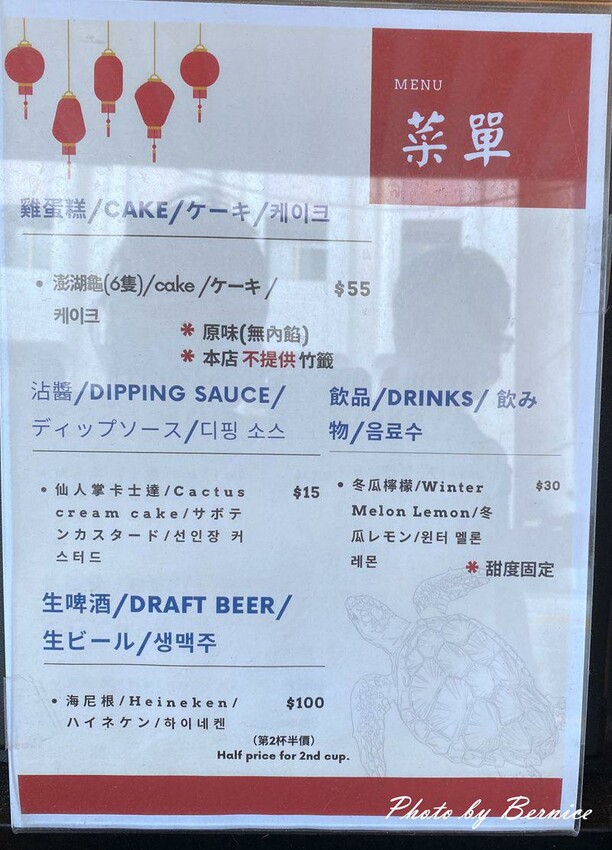 MENU
菜單
雞蛋糕/CAKE/ケーキ/케이크
• 澎湖龜(6隻)/cake /ケーキ/ $55
케이크
* 原味(無內餡)
* 本店不提供竹籤
沾醬/DIPPING SAUCE/
ディップソース/디핑 소스
• 仙人掌卡士達/Cactus $15
cream cake/サボテ
ンカスタード/선인장 커
스터드
飲品/DRINKS/ 飲み
物/음료수
• 冬瓜檸檬/Winter $30
Melon Lemon/冬
瓜レモン/윈터 멜론
레몬
* 甜度固定
生啤酒/DRAFT BEER/
生ビール/생맥주
• 海尼根/Heineken/ $100
ハイネケン/하이네켄
(第2杯半價)
Half price for 2nd cup.
Photo by Bernice